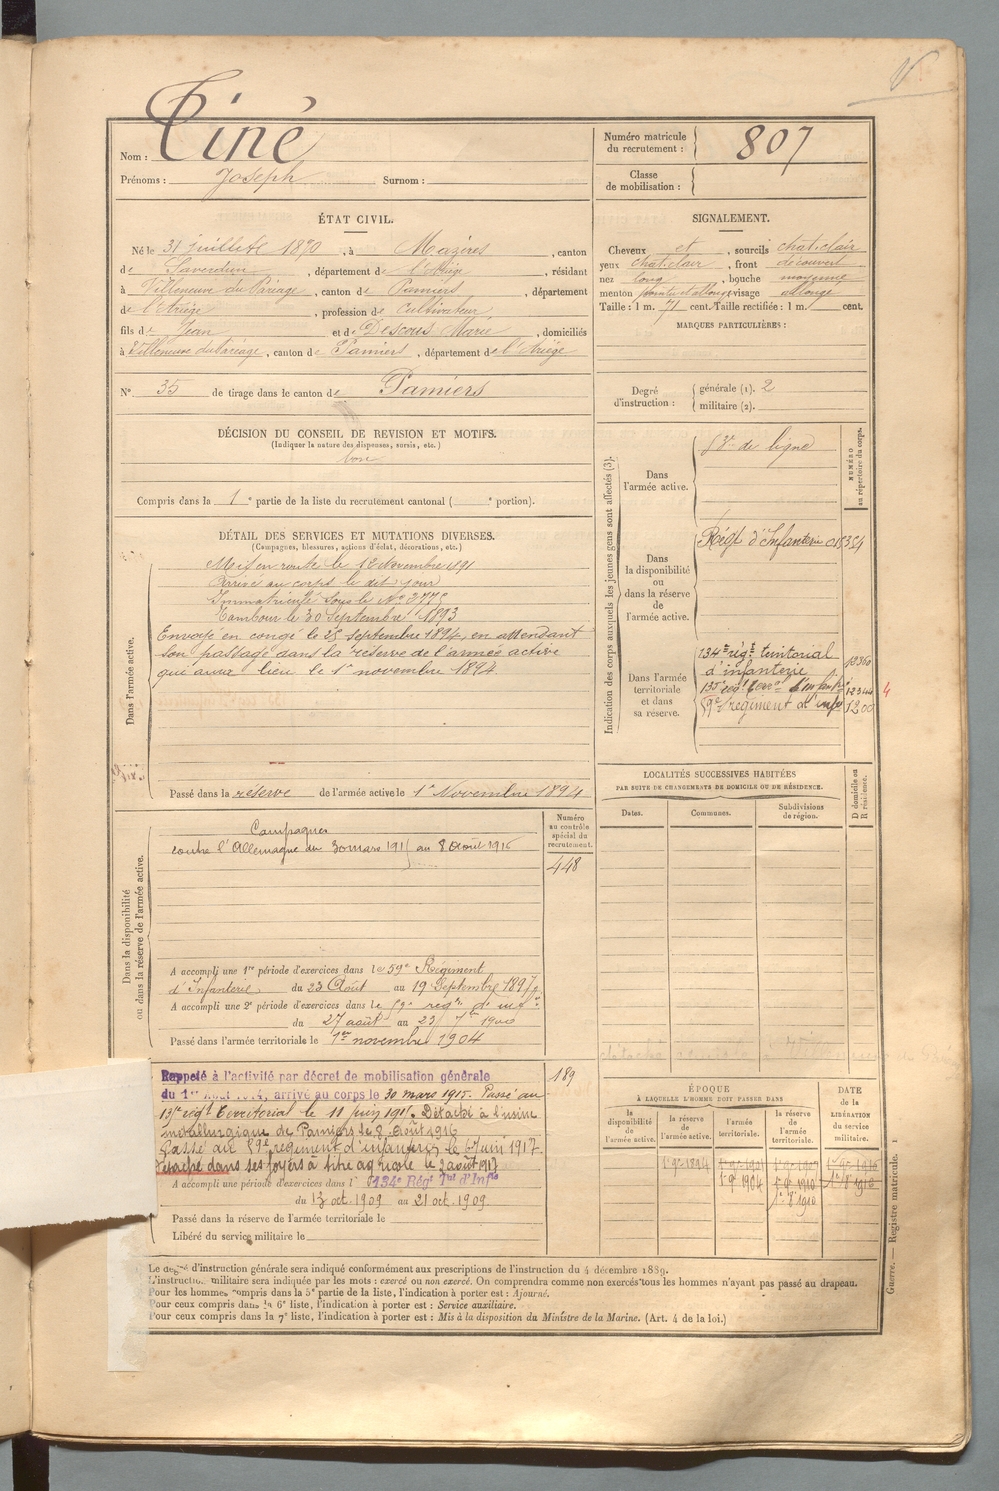 Nom : Tiné
Prénoms : Joseph Surnom :
Numéro matricule du recrutement : 807
Classe de mobilisation :
ÉTAT CIVIL.
Né le 31 juillet 1870, à Mazères, canton
de Saverdun, département de l'Ariège, résidant
à Villeneuve du Paréage, canton de Pamiers, département
de l'Ariège, profession de Cultivateur,
fils de Jean et de Descous Marie, domiciliés
à Villeneuve du Paréage, canton de Pamiers, département de l'Ariège
N° 35 de tirage dans le canton de Pamiers
SIGNALEMENT.
Cheveux et, sourcils chat. clair
yeux chat. clair, front découvert
nez long, bouche moyenne
menton visage allongé
Taille : 1 m. 71 cent. Taille rectifiée : 1 m. cent.
MARQUES PARTICULIÈRES :
Degré d'instruction : générale (1). 2
militaire (2).
DÉCISION DU CONSEIL DE REVISION ET MOTIFS.
(Indiquer la nature des dispenses, sursis, etc.)
bon
Compris dans la 1e partie de la liste du recrutement cantonal ( e portion).
DÉTAIL DES SERVICES ET MUTATIONS DIVERSES.
(Campagnes, blessures, actions d'éclat, décorations, etc.)
Dans l'armée active.
Mis en route le 12 Novembre 1891
Arrivé au corps le dit jour
Immatriculé sous le No
Tambour le 30 Septembre 1893
Envoyé en congé le 25 septembre 1894, en attendant
son passage dans la réserve de l'armée active
qui aura lieu le 1er novembre 1894.
Passé dans la réserve de l'armée active le 1er Novembre 1894
Indication des corps auxquels les jeunes gens sont affectés (3).
NUMÉRO au répertoire du corps.
Dans l'armée active.
de ligne
Dans la disponibilité ou dans la réserve de l'armée active.
Régt d'Infanterie
Dans l'armée territoriale et dans sa réserve.
134me régt territorial
d'infanterie
135e régt terr d'infanterie 12344
4
59e régiment d'inf 1200
LOCALITÉS SUCCESSIVES HABITÉES
PAR SUITE DE CHANGEMENTS DE DOMICILE OU DE RÉSIDENCE.
Dates. Communes. Subdivisions de région.
D domicile ou R résidence.
Dans la disponibilité ou dans la réserve de l'armée active.
Numéro au contrôle spécial du recrutement.
448
Campagnes
contre l'Allemagne du 30 mars 1915 au 8 Août 1916
A accompli une 1re période d'exercices dans le 59e Régiment
d'Infanterie du 23 Août au 19 Septembre 1897
A accompli une 2e période d'exercices dans le régt d'inf
du 27 août au 23 1900
Passé dans l'armée territoriale le 1er novembre 1904
Rappelé à l'activité par décret de mobilisation générale
du 1er Août 1914, arrivé au corps le 30 mars 1915. Passé au
régt Territorial le 11 juin 1915. Détaché à l'usine
métallurgique de Pamiers le 8 Août 1916
Passé au 59e régiment d'infanterie le 6 Juin 1917
détaché dans ses foyers à titre agricole le 2 août 1917
189
A accompli une période d'exercices dans l 134e Régt Tal d'Infie
du 13 oct. 1909 au 21 oct. 1909
Passé dans la réserve de l'armée territoriale le
Libéré du service militaire le
ÉPOQUE
À LAQUELLE L'HOMME DOIT PASSER DANS
la disponibilité de l'armée active. la réserve de l'armée active. l'armée territoriale. la réserve de l'armée territoriale.
DATE de la LIBÉRATION du service militaire.
1e 9re 1894
1e 9e 1904 1e 9e 1910
Le degré d'instruction générale sera indiqué conformément aux prescriptions de l'instruction du 4 décembre 1889.
L'instruction militaire sera indiquée par les mots : exercé ou non exercé. On comprendra comme non exercés tous les hommes n'ayant pas passé au drapeau.
Pour les hommes compris dans la 5e partie de la liste, l'indication à porter est : Ajourné.
Pour ceux compris dans la 6e liste, l'indication à porter est : Service auxiliaire.
Pour ceux compris dans la 7e liste, l'indication à porter est : Mis à la disposition du Ministre de la Marine. (Art. 4 de la loi.)
Guerre. — Registre matricule. 1